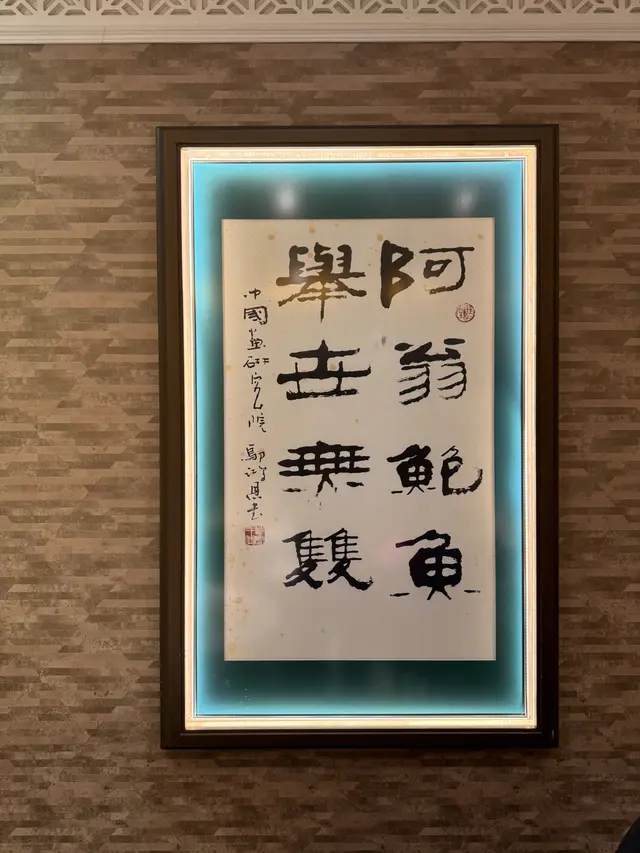 阿翁鮑魚
舉世無雙
中國畫研究院